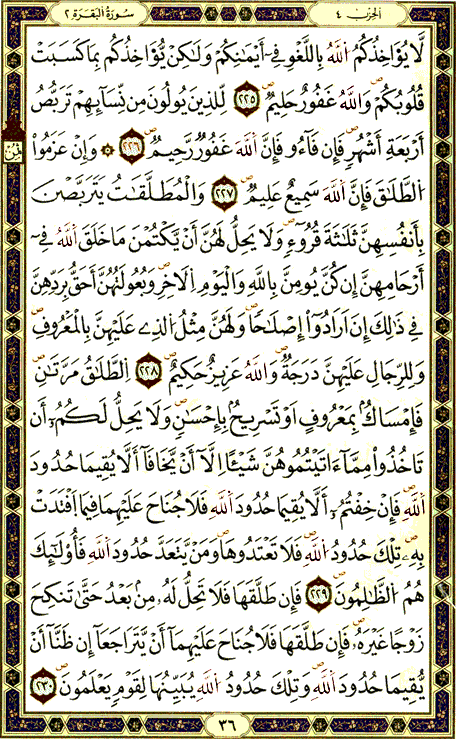 الحزب ٤
سورة البقرة ٢
لَّا يُوَاخِذُكُمُ اُ۬للَّهُ بِاللَّغْوِ فِےٓ أَيْمَٰنِكُمْ وَلَٰكِنْ يُّوَاخِذُكُم بِمَا كَسَبَتْ
قُلُوبُكُمْ وَاللَّهُ غَفُورٌ حَلِيمٌ ٢٢٥ لِّلذِينَ يُولُونَ مِن نِّسَآئِهِمْ تَرَبُّصُ
أَرْبَعَةِ أَشْهُرٍ فَإِن فَآءُو فَإِنَّ اَ۬للَّهَ غَفُورٌ رَّحِيمٌ ٢٢٦ ۞ وَإِنْ عَزَمُواْ
ثمن
اُ۬لطَّلَٰقَ فَإِنَّ اَ۬للَّهَ سَمِيعٌ عَلِيمٌ ٢٢٧ وَالْمُطَلَّقَٰتُ يَتَرَبَّصْنَ
بِأَنفُسِهِنَّ ثَلَٰثَةَ قُرُوٓءٍ وَلَا يَحِلُّ لَهُنَّ أَنْ يَّكْتُمْنَ مَا خَلَقَ اَ۬للَّهُ فِےٓ
أَرْحَامِهِنَّ إِن كُنَّ يُومِنَّ بِاللَّهِ وَالْيَوْمِ اِ۬لَاخِرِ وَبُعُولَتُهُنَّ أَحَقُّ بِرَدِّهِنَّ
فِے ذَٰلِكَ إِنَ اَرَادُوٓاْ إِصْلَٰحاً وَلَهُنَّ مِثْلُ اُ۬لذِے عَلَيْهِنَّ بِالْمَعْرُوفِ
وَلِلرِّجَالِ عَلَيْهِنَّ دَرَجَةٌ وَاللَّهُ عَزِيزٌ حَكِيمٌ ٢٢٨ اُ۬لطَّلَٰقُ مَرَّتَٰنِ
فَإِمْسَاكُۢ بِمَعْرُوفٍ اَوْ تَسْرِيحُۢ بِإِحْسَٰنٍ وَلَا يَحِلُّ لَكُمُۥٓ أَن
تَاخُذُواْ مِمَّآ ءَاتَيْتُمُوهُنَّ شَيْـًٔا اِلَّآ أَنْ يَّخَافَآ أَلَّا يُقِيمَا حُدُودَ
اَ۬للَّهِ فَإِنْ خِفْتُمُۥٓ أَلَّا يُقِيمَا حُدُودَ اَ۬للَّهِ فَلَا جُنَاحَ عَلَيْهِمَا فِيمَا اَ۪فْتَدَتْ
بِهِۦ تِلْكَ حُدُودُ اُ۬للَّهِ فَلَا تَعْتَدُوهَا وَمَنْ يَّتَعَدَّ حُدُودَ اَ۬للَّهِ فَأُوْلَٰٓئِكَ
هُمُ اُ۬لظَّٰلِمُونَ ٢٢٩ فَإِن طَلَّقَهَا فَلَا تَحِلُّ لَهُۥ مِنۢ بَعْدُ حَتَّىٰ تَنكِحَ
زَوْجاً غَيْرَهُۥ فَإِن طَلَّقَهَا فَلَا جُنَاحَ عَلَيْهِمَآ أَنْ يَّتَرَاجَعَآ إِن ظَنَّآ أَنْ
يُّقِيمَا حُدُودَ اَ۬للَّهِ وَتِلْكَ حُدُودُ اُ۬للَّهِ يُبَيِّنُهَا لِقَوْمٍ يَعْلَمُونَ ٢٣٠
٣٦